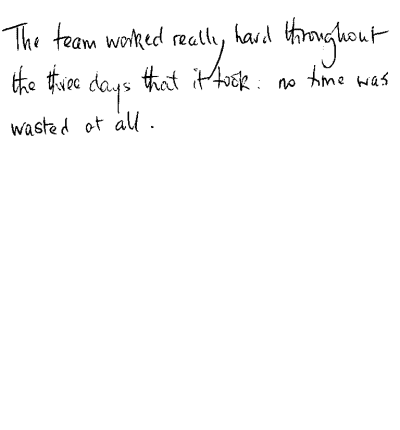 The team worked really hard throughout
the three days that it took: no time was
wasted at all.